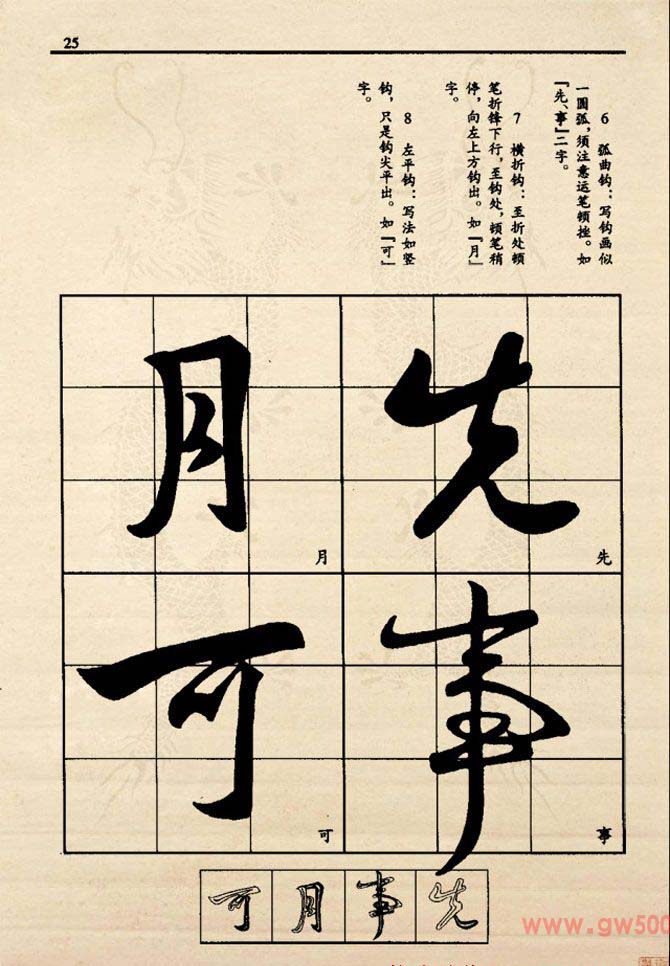 25
6 弧曲钩：写钩画似
一圆弧，须注意运笔顿挫。如
『先、事』二字。
7 横折钩：至折处顿
笔折锋下行，至钩处，顿笔稍
停，向左上方钩出。如『月』
字。
8 左平钩：写法如竖
钩，只是钩尖平出。如『可』
字。
先
先
事
事
月
月
可
可
可 月 事 先
www.gw500